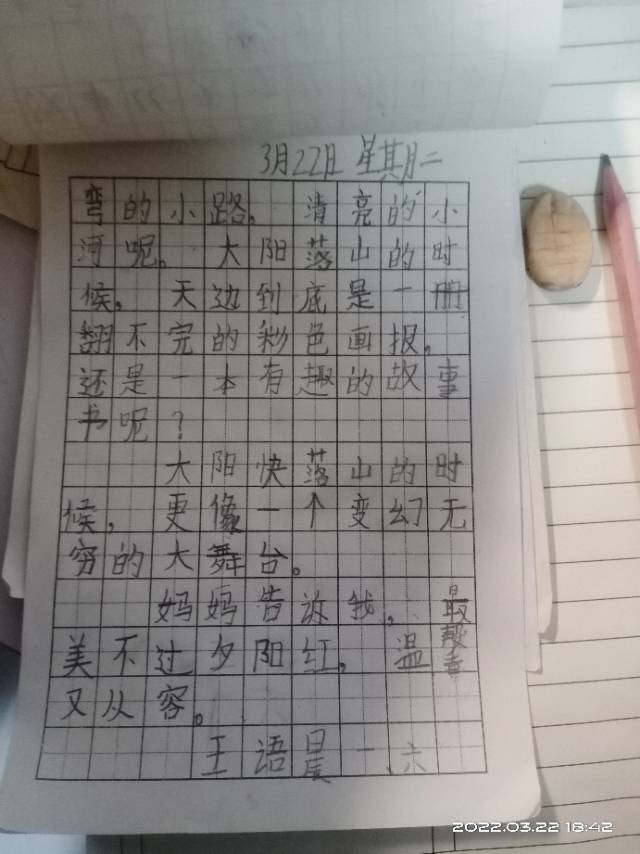 3月22日 星期二
弯的小路。清亮的小
河呢。大阳落山的时
候,天边到底是一册
翻不完的彩色画报,
还是一本有趣的故事
书呢?
大阳快落山的时
候,更像一个变幻无
穷的大舞台。
妈妈告诉我,最
美不过夕阳红,温馨
又从容。
王语晨 一、六
2022.03.22 18:42